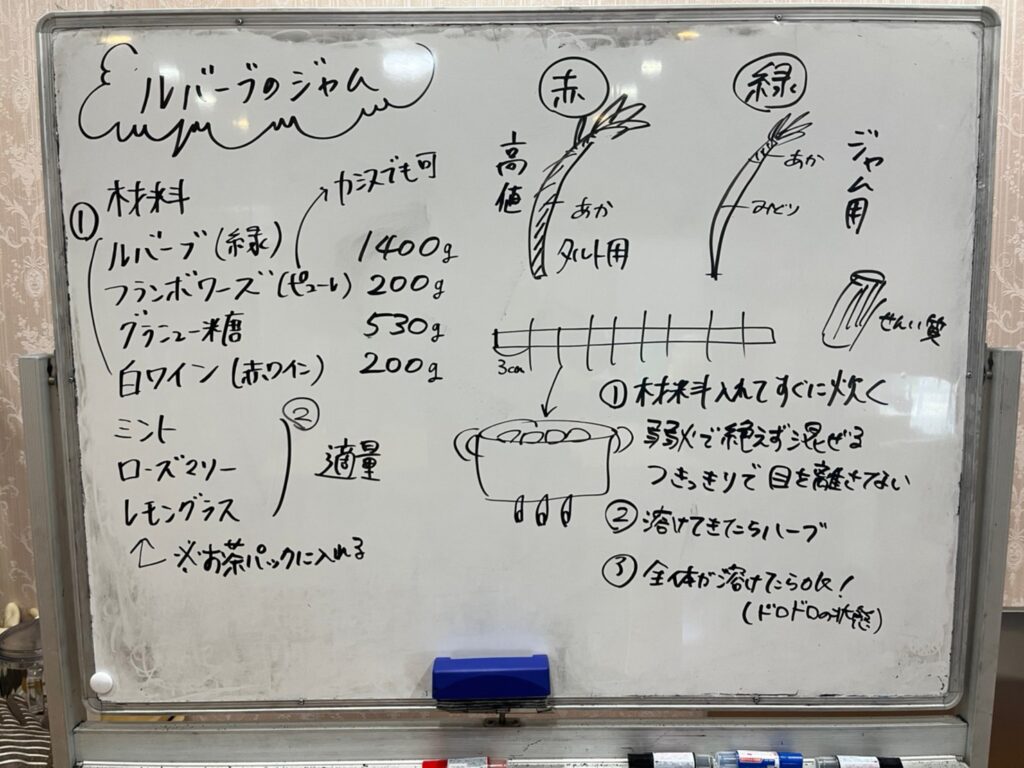 ルバーブのジャム
材料
カシスでも可
①
ルバーブ(緑) 1400g
フランボワーズ(ピューレ) 200g
グラニュー糖 530g
白ワイン(赤ワイン) 200g
②
ミント
ローズマリー
レモングラス
適量
※お茶パックに入れる
赤
高値
あか
タルト用
緑
あか
みどり
ジャム用
せんい質
3cm
①材料入れてすぐに炊く
弱火で絶えず混ぜる
つきっきりで目を離さない
②溶けてきたらハーブ
③全体が溶けたらOK!
(ドロドロの状態)